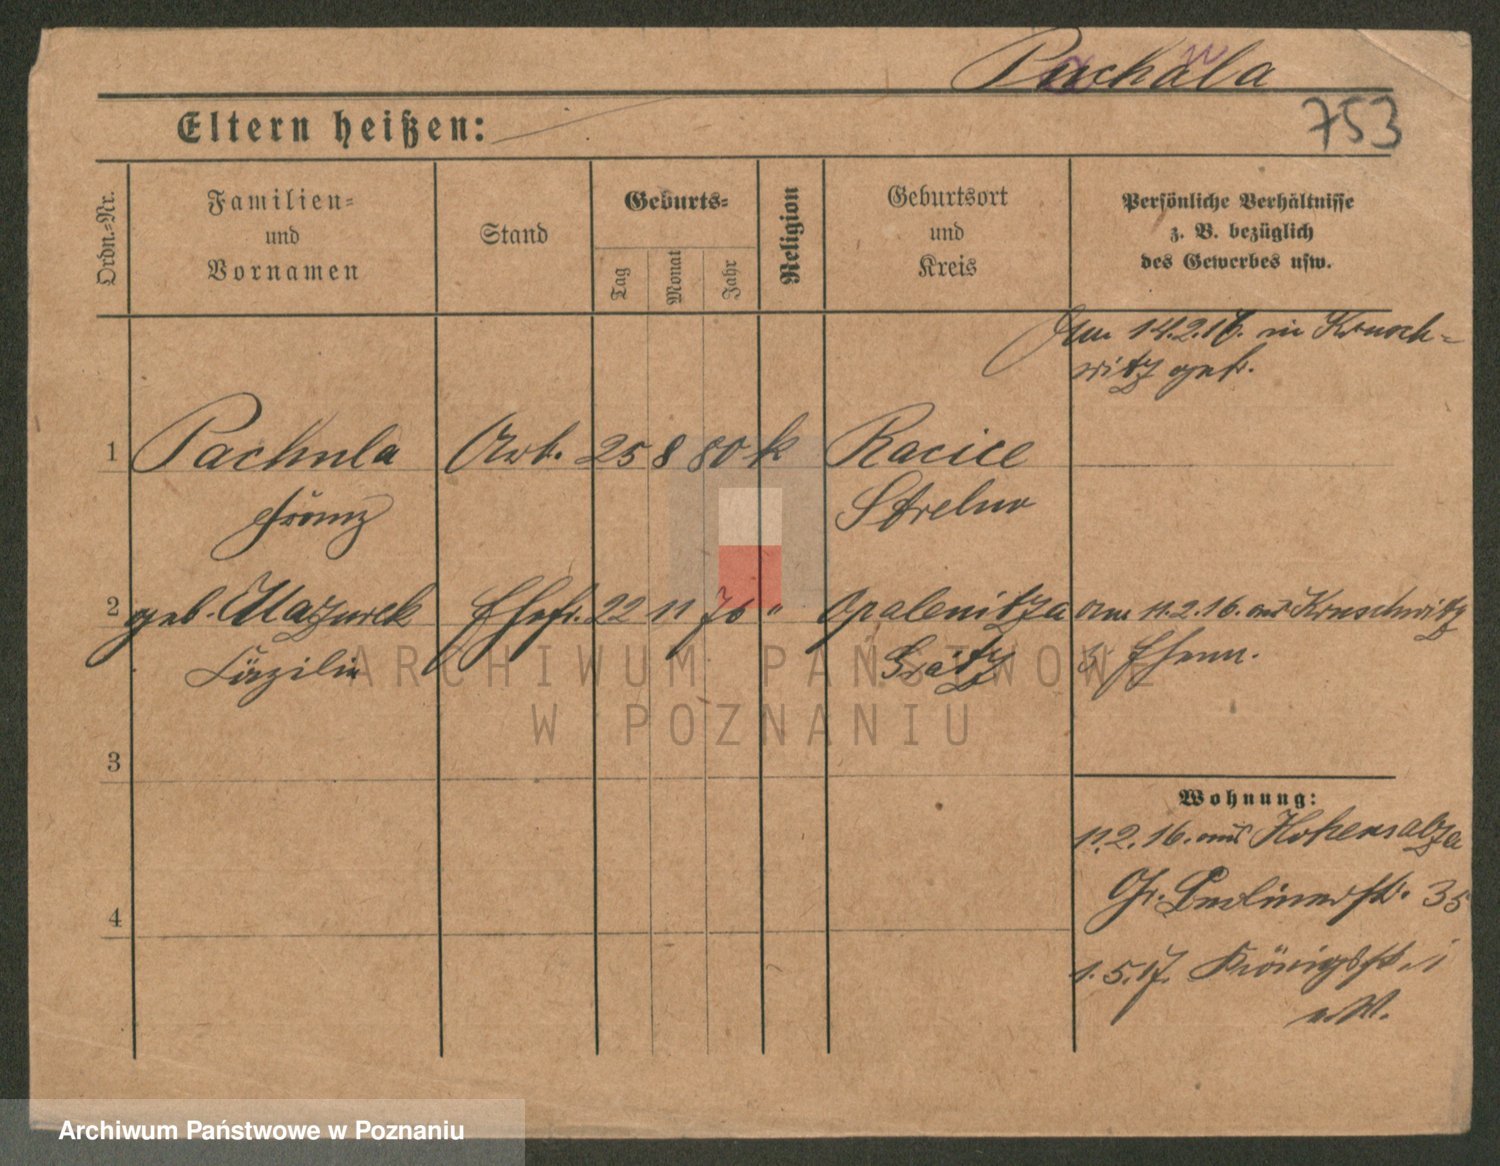 Puchala
753
Eltern heißen:
Ordn.-Nr.
Familien-
und
Vornamen
Stand
Geburts-
Tag
Monat
Jahr
Religion
Geburtsort
und
Kreis
Persönliche Verhältnisse
z. B. bezüglich
des Gewerbes usw.
Am 14.2.16. in Krusch-
witz get.
1 Pachula Arb. 25 8 80 k Racice
Franz Strelno
2 geb. Mazurek Ehefr. 22 11 76 " Opalenitza am 11.2.16. aus Kruschwitz
Cäzilie Grätz z. Ehem.
3
Wohnung:
11.2.16. aus Hohensalza
Gr. Berlinerstr. 35
4
1.5.17. Königstr. 1
ARCHIWUM PAŃSTWOWE
W POZNANIU
Archiwum Państwowe w Poznaniu